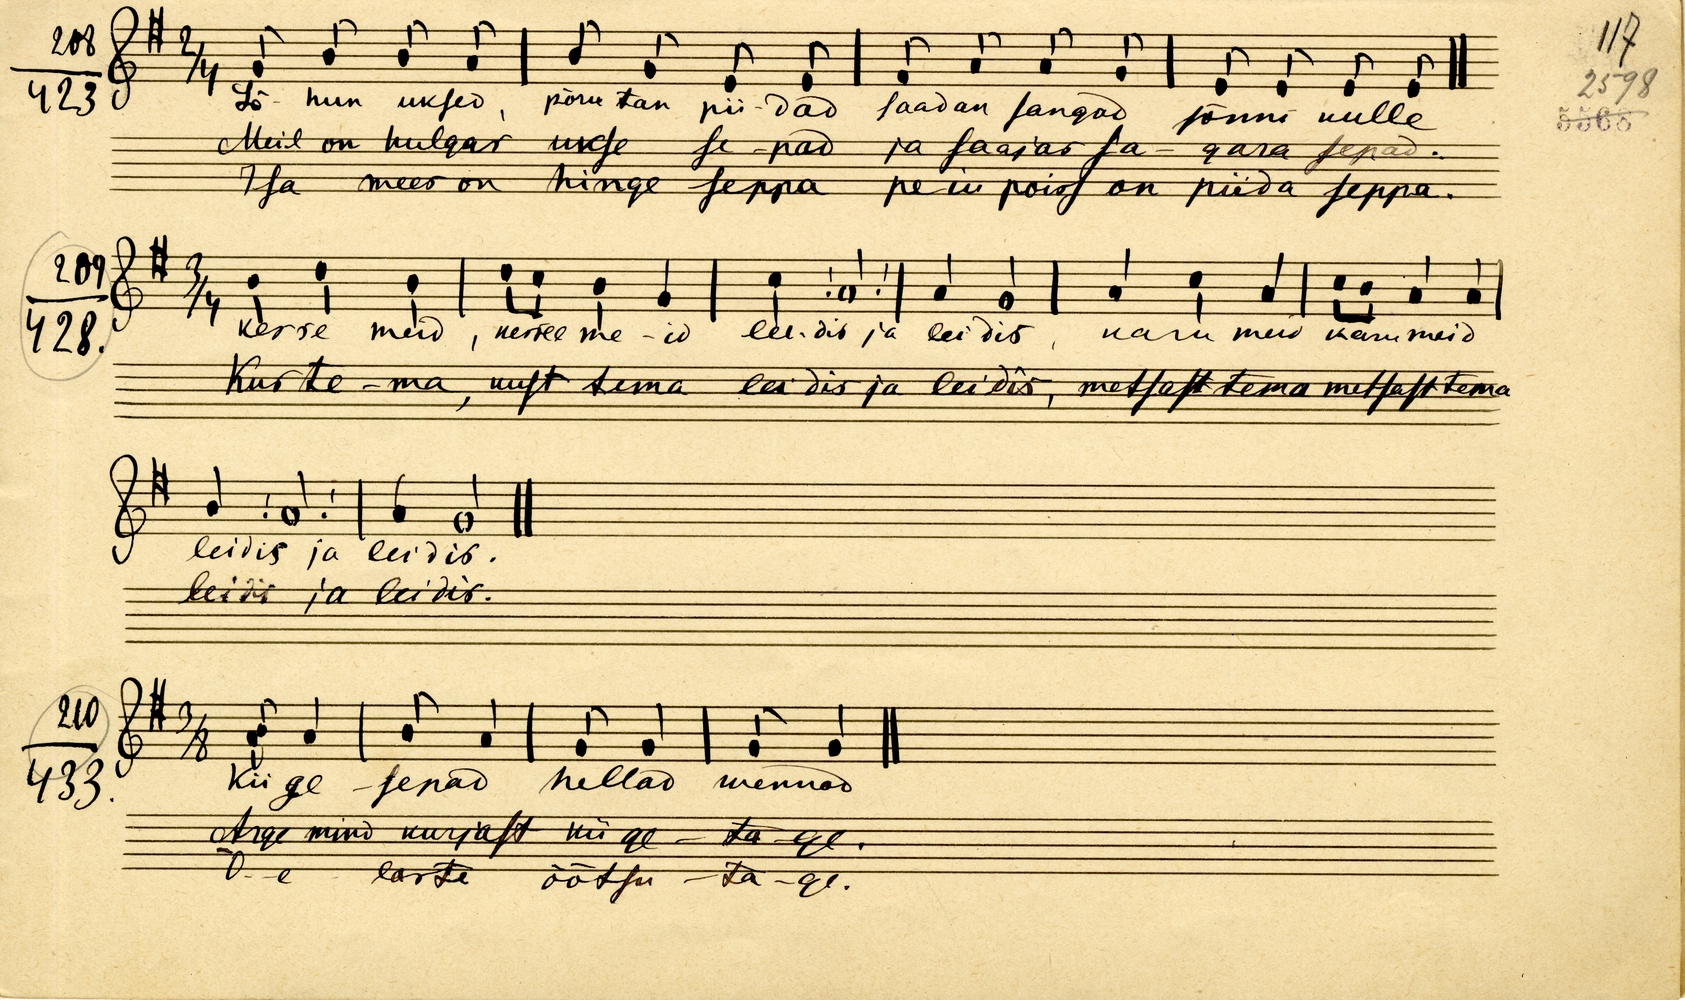 208
423
117
2598
5565
2/4
Lõ- hun uksed, põru tan pii-dad saadan sangad sõnni uulle
Meil on hulgas ukse se-pad ja saajas sa-gara sepad.
Isa mees on hinge seppa peiu poiss on piida seppa.
209
428.
3/4
kerre meid, kerree me-id lei-dis ja lei dis, karu meid karu meid
Kus te-ma, kust tema lei dis ja lei dis, metsast tema metsast tema
leidis ja lei dis.
leidis ja lei dis.
210
433.
3/8
Kii ge -sepad hellad wennad
Ärge mind kurjast kii ge-ta-ge.
Õ-e laste õõtsu-ta-ge.